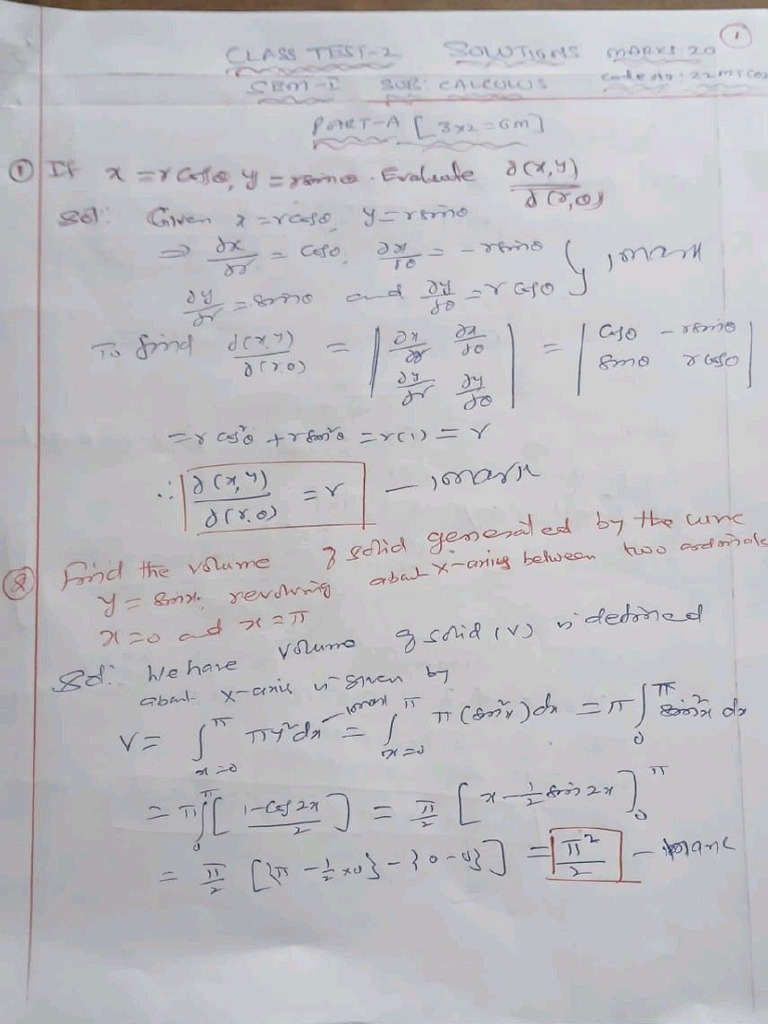 1
CLASS TEST-2 SOLUTIONS MARKS: 20
SEM-I SUB: CALCULUS Code No:
PART-A [3x2=6m]
① If x = r cosθ, y = r sinθ. Evaluate ∂(x,y)/∂(r,θ)
Sol: Given x = r cosθ, y = r sinθ
⇒ ∂x/∂r = cosθ, ∂x/∂θ = -r sinθ
∂y/∂r = sinθ and ∂y/∂θ = r cosθ } 1 mark
To find ∂(x,y)/∂(r,θ) = | ∂x/∂r ∂x/∂θ ; ∂y/∂r ∂y/∂θ | = | cosθ -r sinθ ; sinθ r cosθ |
= r cos²θ + r sin²θ = r(1) = r
∴ ∂(x,y)/∂(r,θ) = r — 1 mark
② Find the volume of solid generated by the curve
y = sinx. revolving about x-axis between two
x=0 and x=π
Sol: We have volume of solid (V) is defined
about x-axis is given by
V = ∫_{x=0}^{π} πy²dx — 1 mark = ∫_{x=0}^{π} π(sin²x)dx = π∫_0^π sin²x dx
= π∫_0^π [1-cos2x/2] = π/2 [x - 1/2 sin2x]_0^π
= π/2 [{π - 1/2 x0} - {0-0}] = π²/2 — 1 mark